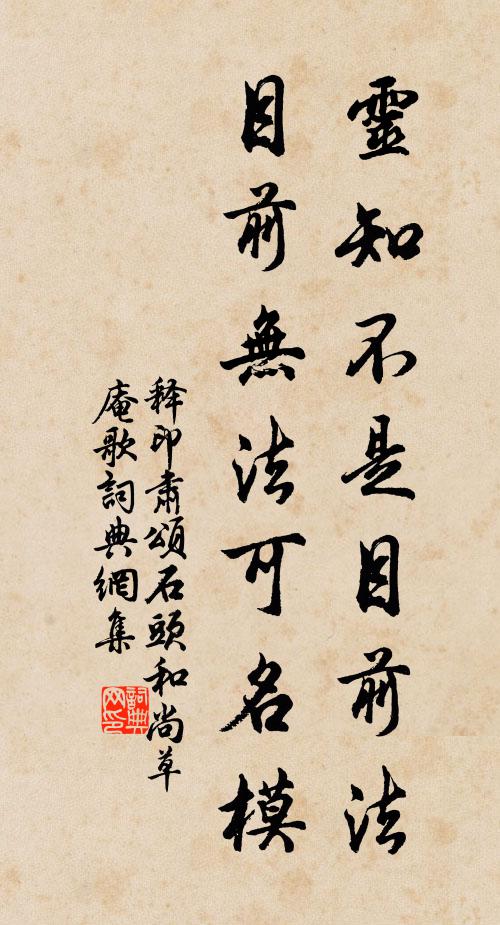 靈知不是目前法
目前無法可名模
释印肃頌石頭和尚草
庵歌詞典網集
詞典
网印